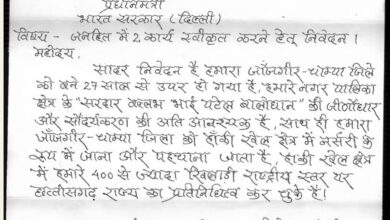 प्रधानमंत्री
भारत सरकार (दिल्ली)
विषय - जनहित में 2 कार्य स्वीकृत करने हेतु निवेदन।
महोदय,
सादर निवेदन है हमारा जाँजगीर-चाम्पा जिले
को बने 27 साल से उपर हो गया है, हमारे नगर पालिका
क्षेत्र के "सरदार वल्लभ भाई पटेल बालोधान" की जीर्णोधार
और सौंदर्यकरण की अति आवश्यक है, साथ ही हमारा
जाँजगीर-चाम्पा जिला को हॉकी खेल क्षेत्र में नर्सरी के
रूप में जाना और पहचाना जाता है, हॉकी खेल क्षेत्र
में हमारे 400 से ज्यादा खिलाड़ी राष्ट्रीय स्तर पर
छत्तीसगढ़ राज्य का प्रतिनिधित्व कर चुके है!